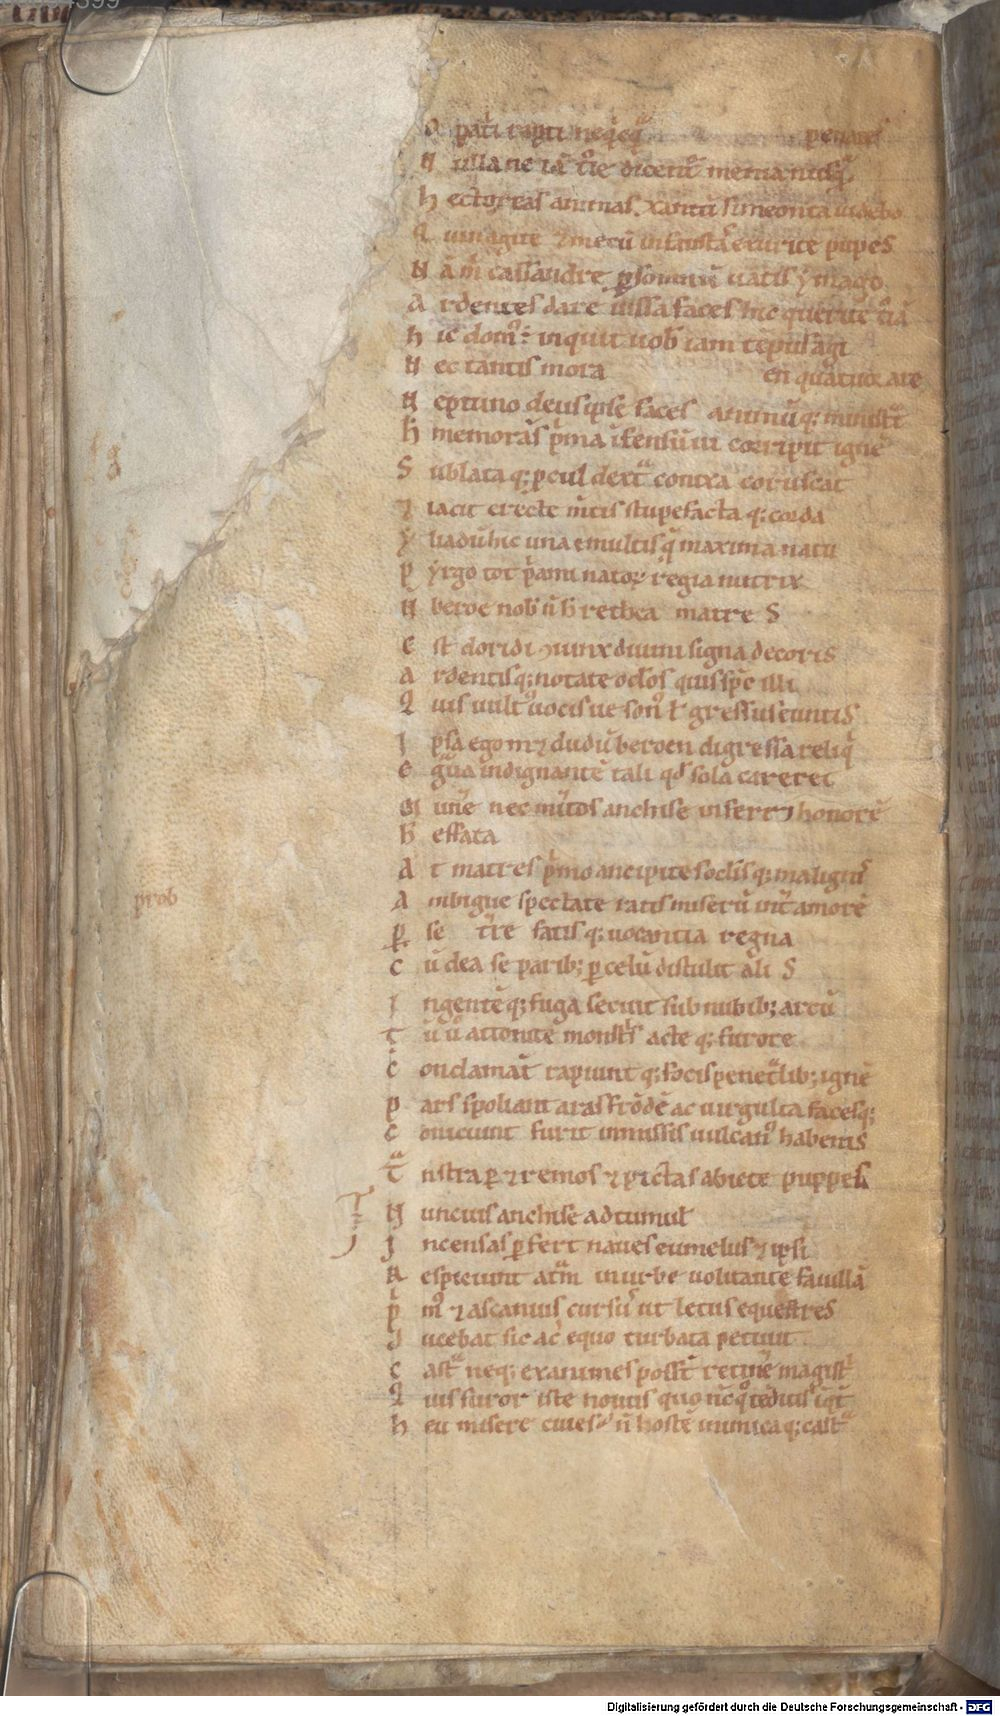 O pat̄i rapti neq̇cq̄ penates
N ulla ne iā t͛ie dicent᷑ menia nusq̄
h ectoreas amnas. xantū simeonta uidebo
Q uin agite ⁊ mecū infaustas exurite pupes
N ā m̄ cassandre ꝑ somnū uatis ymago
A rdentes dare uissa faces hic querite t͛iā
h ic dom᷒ ÷ inquit uob̄ iam tēpus agi
N ec tantis mora en quatuor are
N eptuno deus ipse faces animūq; ministᷓt
h̄ memorās p̄ma īfensū ui corripit ignē
S ublataq; ꝓcul dextᷓ conixa coruscat
⁊ iacit erecte m̄tis stupefactaq; corda
y liadū hic una e multis q̄ maxima natu
p yrgo tot p̄ami natoꝝ regia nutrix
N beroe nob̄ n̄ h̄ rethea matre S
e st doridi ↄiunx diuini signa decoris
a rdentisq; notate oc̄los quis sp̄c illi
Q uis uult᷒ uocisue son᷒ ł gressus euntis
I psa egom⁊ dudū beroen digressa reliq̄
e gᷓua indignantē tali qd̄ sola careret
M un̄e nec m̄itos anchise inferr⁊ honorē
h̄ effata
A t matres p̄mo ancipites oc̄lisq; malignis
A mbigue spectate ratis miserū int̄ amorē
p̱ se t͛re fatisq; uocantia regna
C ū dea se parib; ꝑ celū distulit ali S
I ngentēq; fuga secuit sub nubib; arcū
T ū uͦ attonite monstͥs acteq; furore
C onclamāt rapiuntq; focis penetᷓlib; ignē
p ars spoliant aras frōdē ac uirgulta facesq;
C oniciunt furit inmissis uulcan᷒ habenis
Tᷓ nstra ꝑ ⁊ remos ⁊ pictas abiete puppes
N uncius anchise ad tumul̄
I ncensas ꝑfert naues eumelus ⁊ ipsi
R espiciunt atᷓm in nrbe uolitante fauillā
p m᷒ ⁊ ascanius cursū ut letus equestres
D ucebat sic ac͛ equo turbata petiuit
C astᷓ neq; exanimes posst̄ retin̄e magistͥ
Q uis furor iste nouus quo nc̄ qͦ tēditis īqt̄
h eu misere ciues n̄ hostē inimicaq; castᷓ
prob